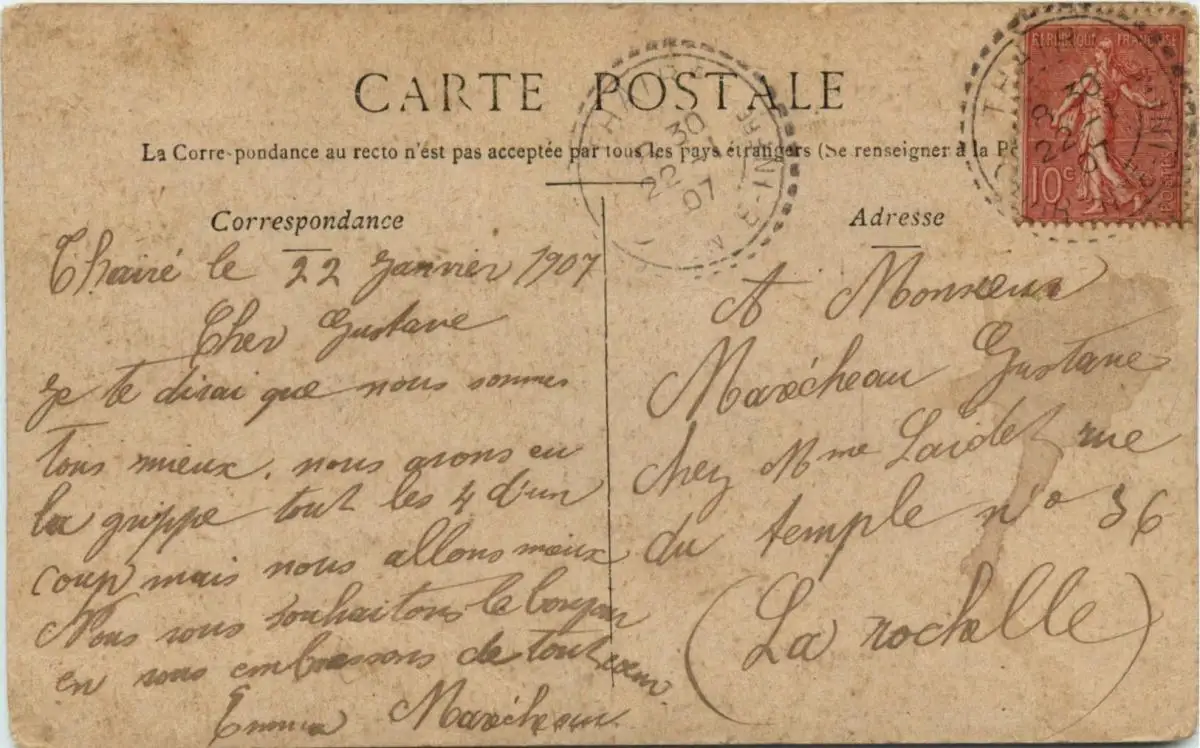 CARTE POSTALE
La Corre-pondance au recto n'est pas acceptée par tous les pays étrangers (Se renseigner à la P
Correspondance
Thairé le 22 Janvier 1907
Cher Gustave
Je te dirai que nous sommes
tous mieux. nous avons eu
la grippe tout les 4 d'un
coup mais nous allons mieux
Nous vous souhaitons le bonjour
en vous embrassons de tout cœur
Emma Marécheau
Adresse
A Monsieur
Marécheau Gustave
chez Mme Laidet rue
du temple n° 36
(La rochelle)
REPUBLIQUE FRANÇAISE
10c
POSTES
THAIRE
30
22
07
8 30
22 - 1
07